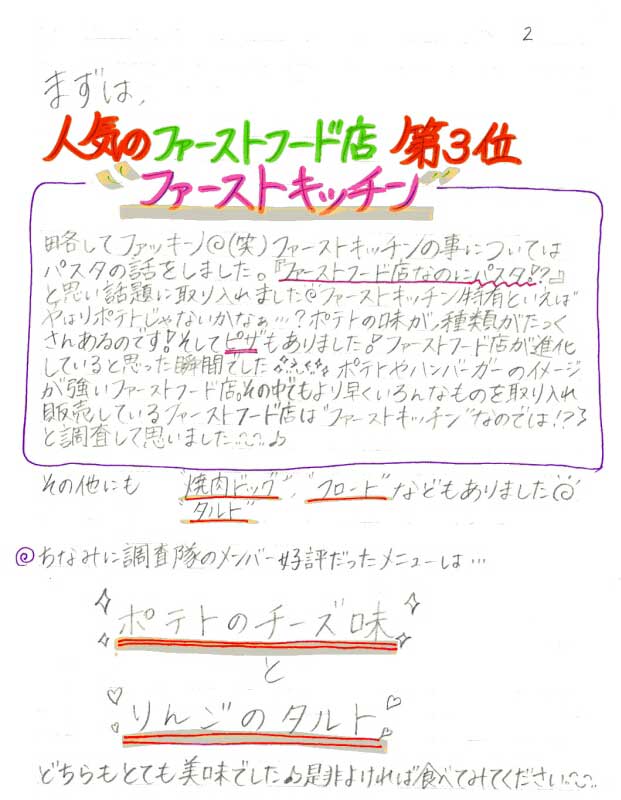 2
まずは、
人気のファーストフード店 第3位
"ファーストキッチン"
略してファッキン◎(笑)ファーストキッチンの事については
パスタの話をしました。『ファーストフード店なのにパスタ!?』
と思い話題に取り入れました◎ファーストキッチン特有といえば
やはりポテトじゃないかなぁ…?ポテトの味が、種類がたっく
さんあるのです!そしてピザもありました!ファーストフード店が進化
していると思った瞬間でした ポテトやハンバーガーのイメージ
が強いファーストフード店。その中でもより早くいろんなものを取り入れ
販売しているファーストフード店は"ファーストキッチン"なのでは!?
と調査して思いました♪
その他にも "焼肉ドッグ"、"フロート"などもありました
"タルト"
◎ちなみに調査隊のメンバー好評だったメニューは…
ポテトのチーズ味
と
りんごのタルト
どちらもとても美味でした♪是非よければ食べてみてください